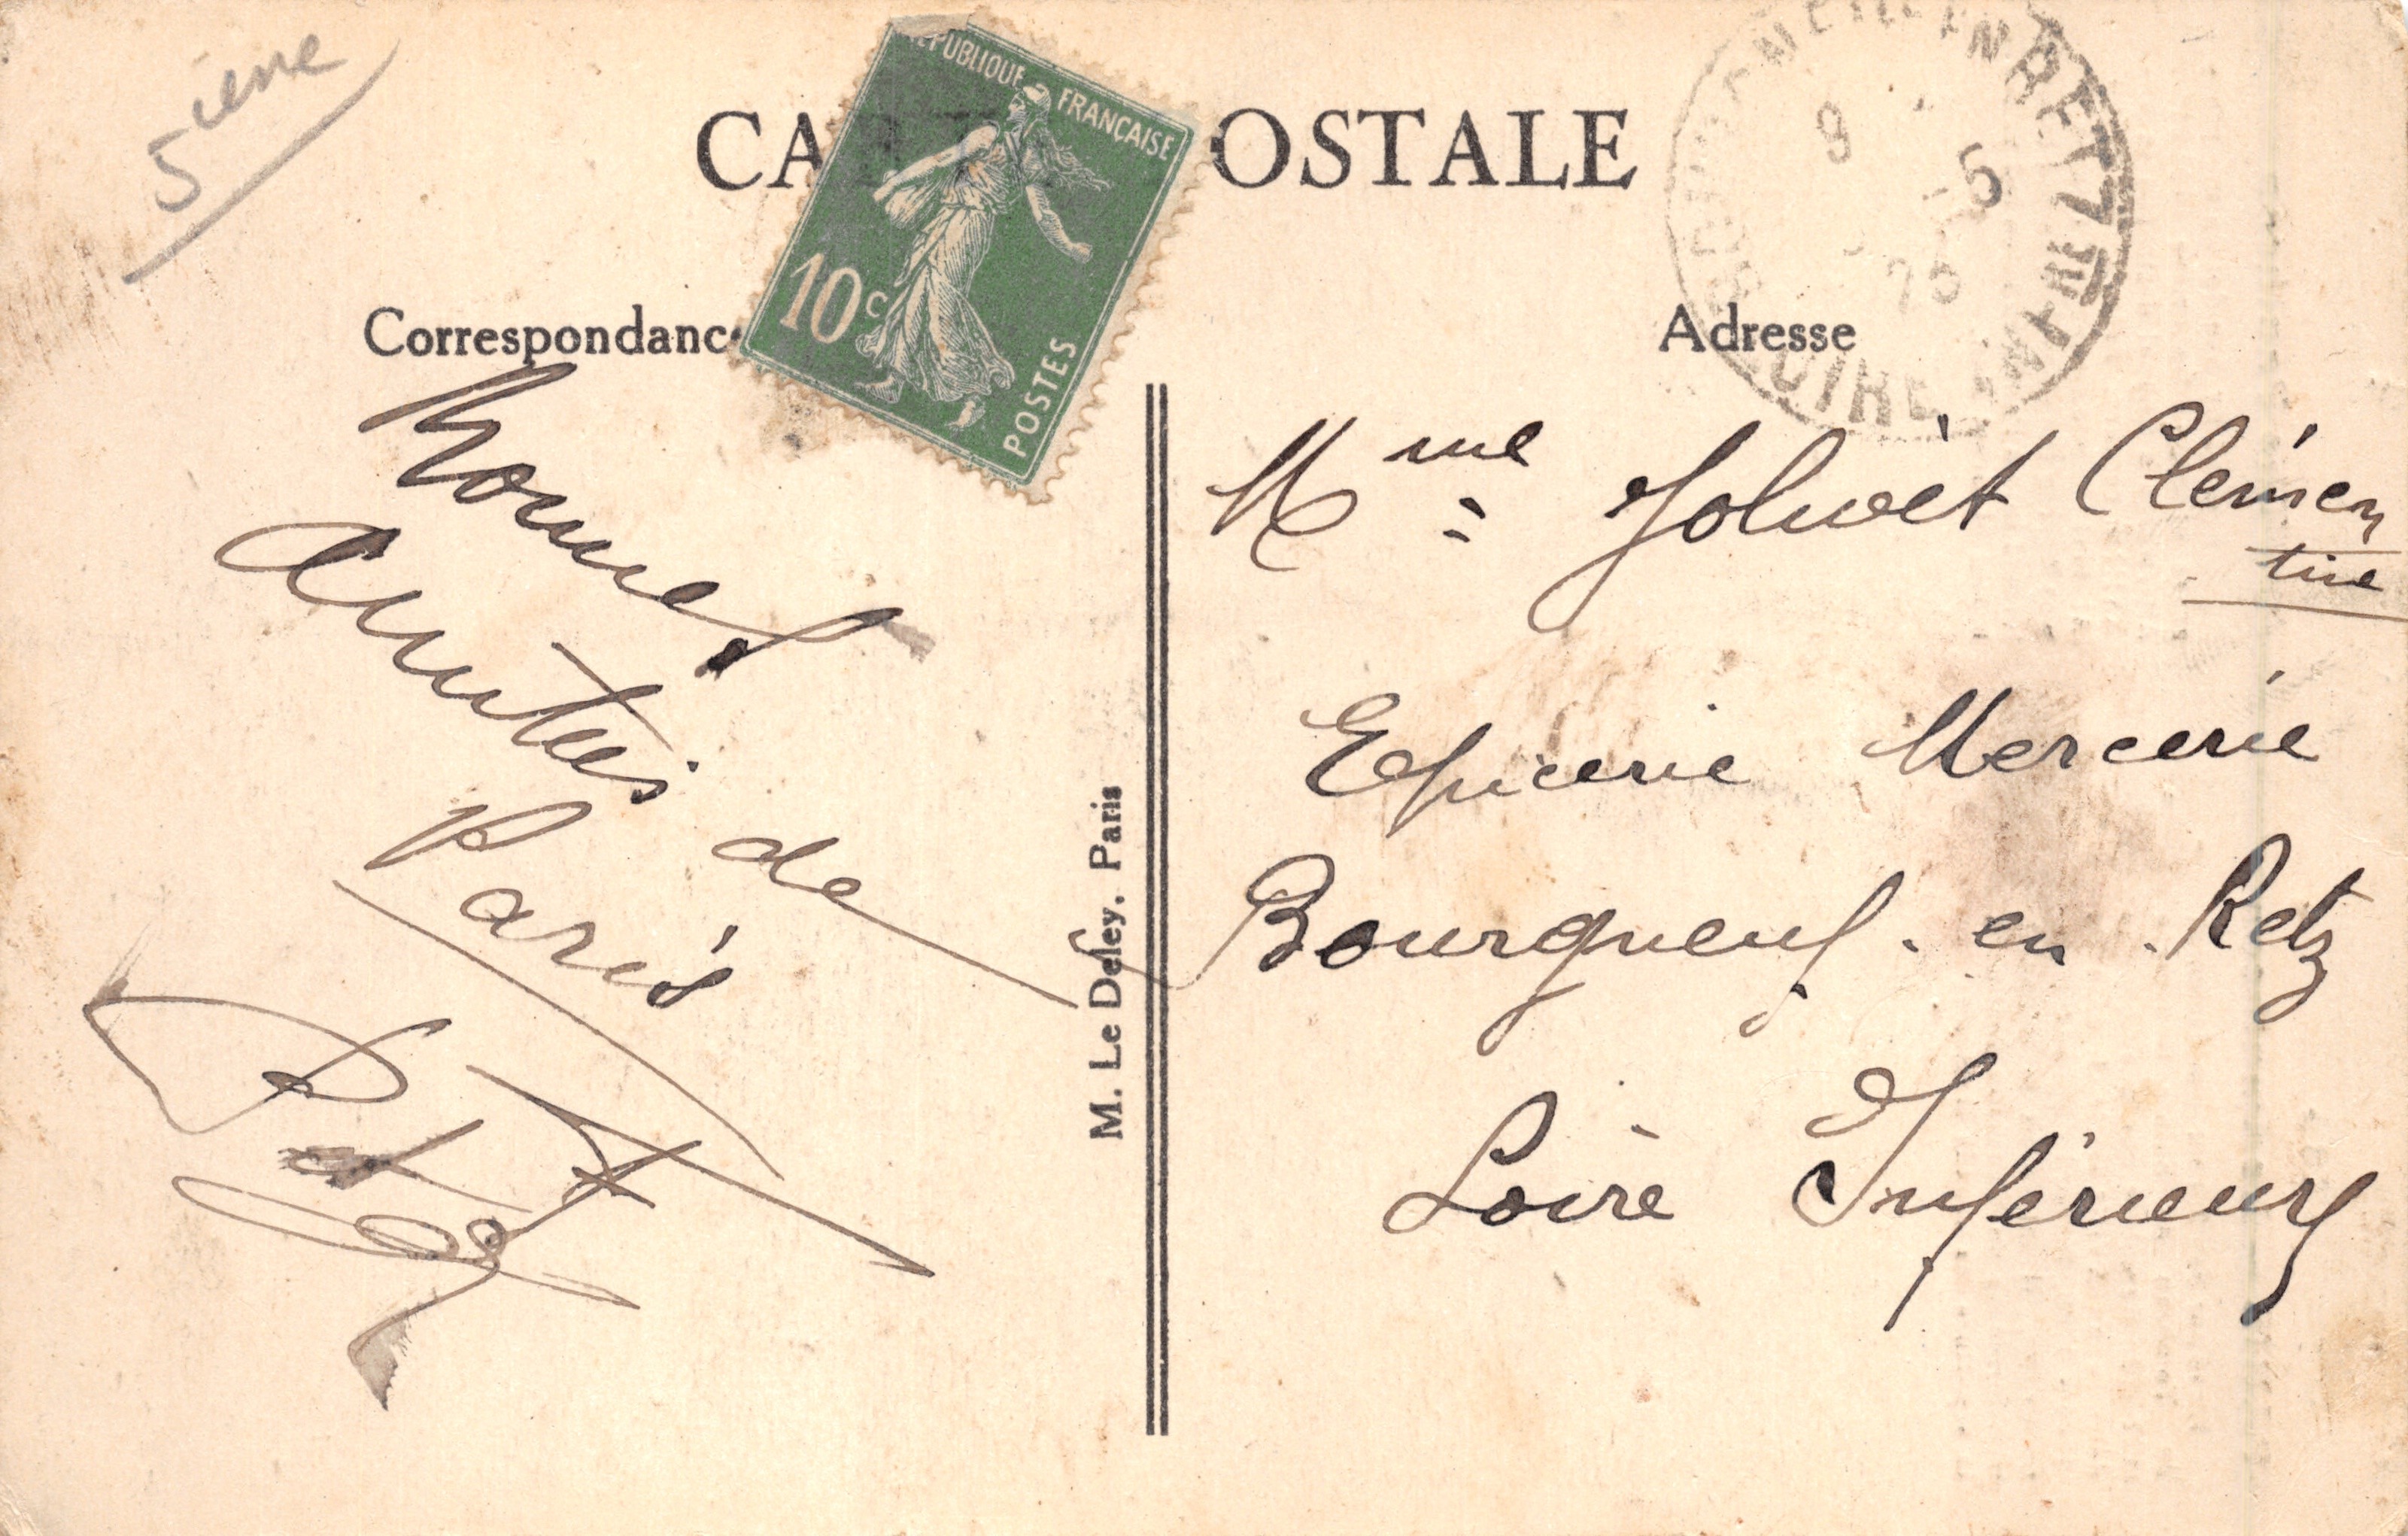 5ième
CA OSTALE
RÉPUBLIQUE FRANÇAISE
10c
POSTES
Correspondanc
Adresse
9 -5
LOIRE INFRE
amitiés de
Paris
M. Le Deley, Paris
Mme Jolivet Clémen
tine
Epicerie Mercerie
Bourgneuf. en. Retz
Loire Inférieure